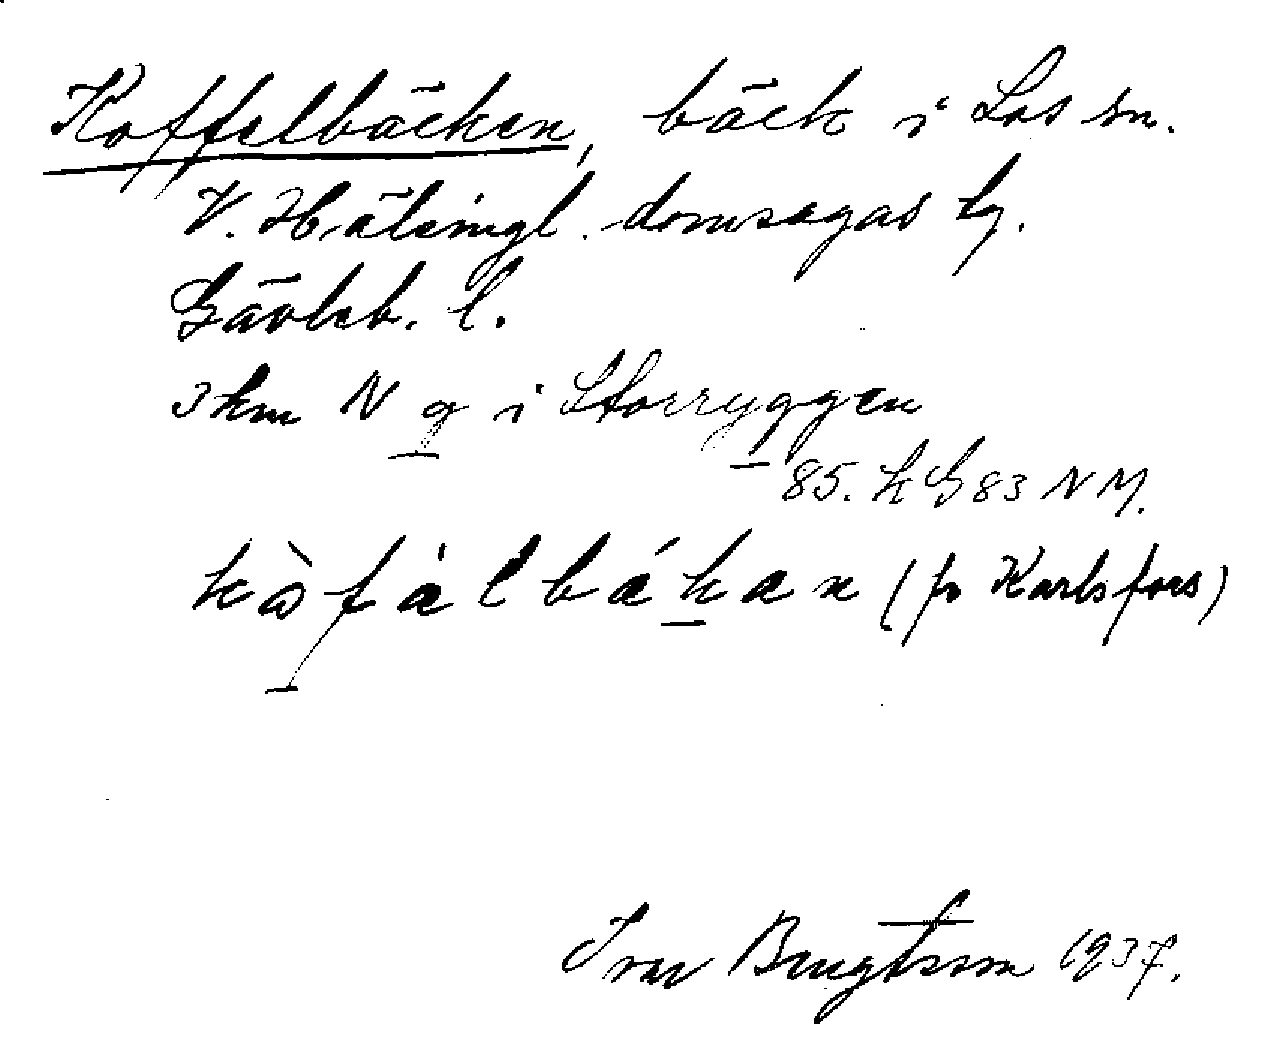 Koffelbäcken, bäck i Los sn.
V. Hälsingl. domsagas tg.
Gävleb. l.
3 km N g i Storryggen
85. k G 83 NM.
kòfàlbákan (fr Karlsfors)
Ivar Bengtsson 1937.